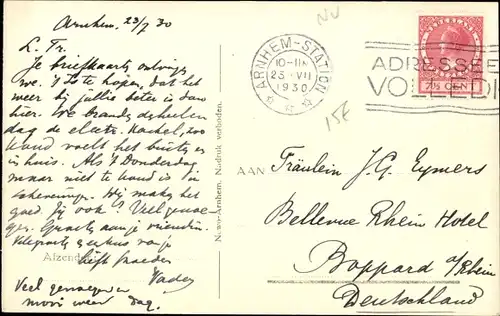 Arnhem, 23/7 30
L. Tr.
Je briefkaart ontvingen
we. 't Is te hopen, dat het
weer bij jullie beter is dan
hier. We branden den heelen
dag de electr. kachel, zoo
koud voelt het buiten en
in huis. Als 't Donderdag
maar niet te koud is in
Scheveningen. Wij maken het
goed. Jij ook? Veel genoe-
gen. Groeten aan je vriendin.
en kus van je
liefh. moeder
Vader
Veel genoegen
mooi weer dag.
Afzender:
N. wv-Arnhem. Nadruk verboden.
NU
ARNHEM-STATION
10-11N
23 VII
1930
15E
NEDERLAND
7½ CENT
ADRESSEE
VOLLEDI
AAN Fräulein J. G. Eymers
Bellevue Rhein Hotel
Boppard a/Rhein
Deutschland